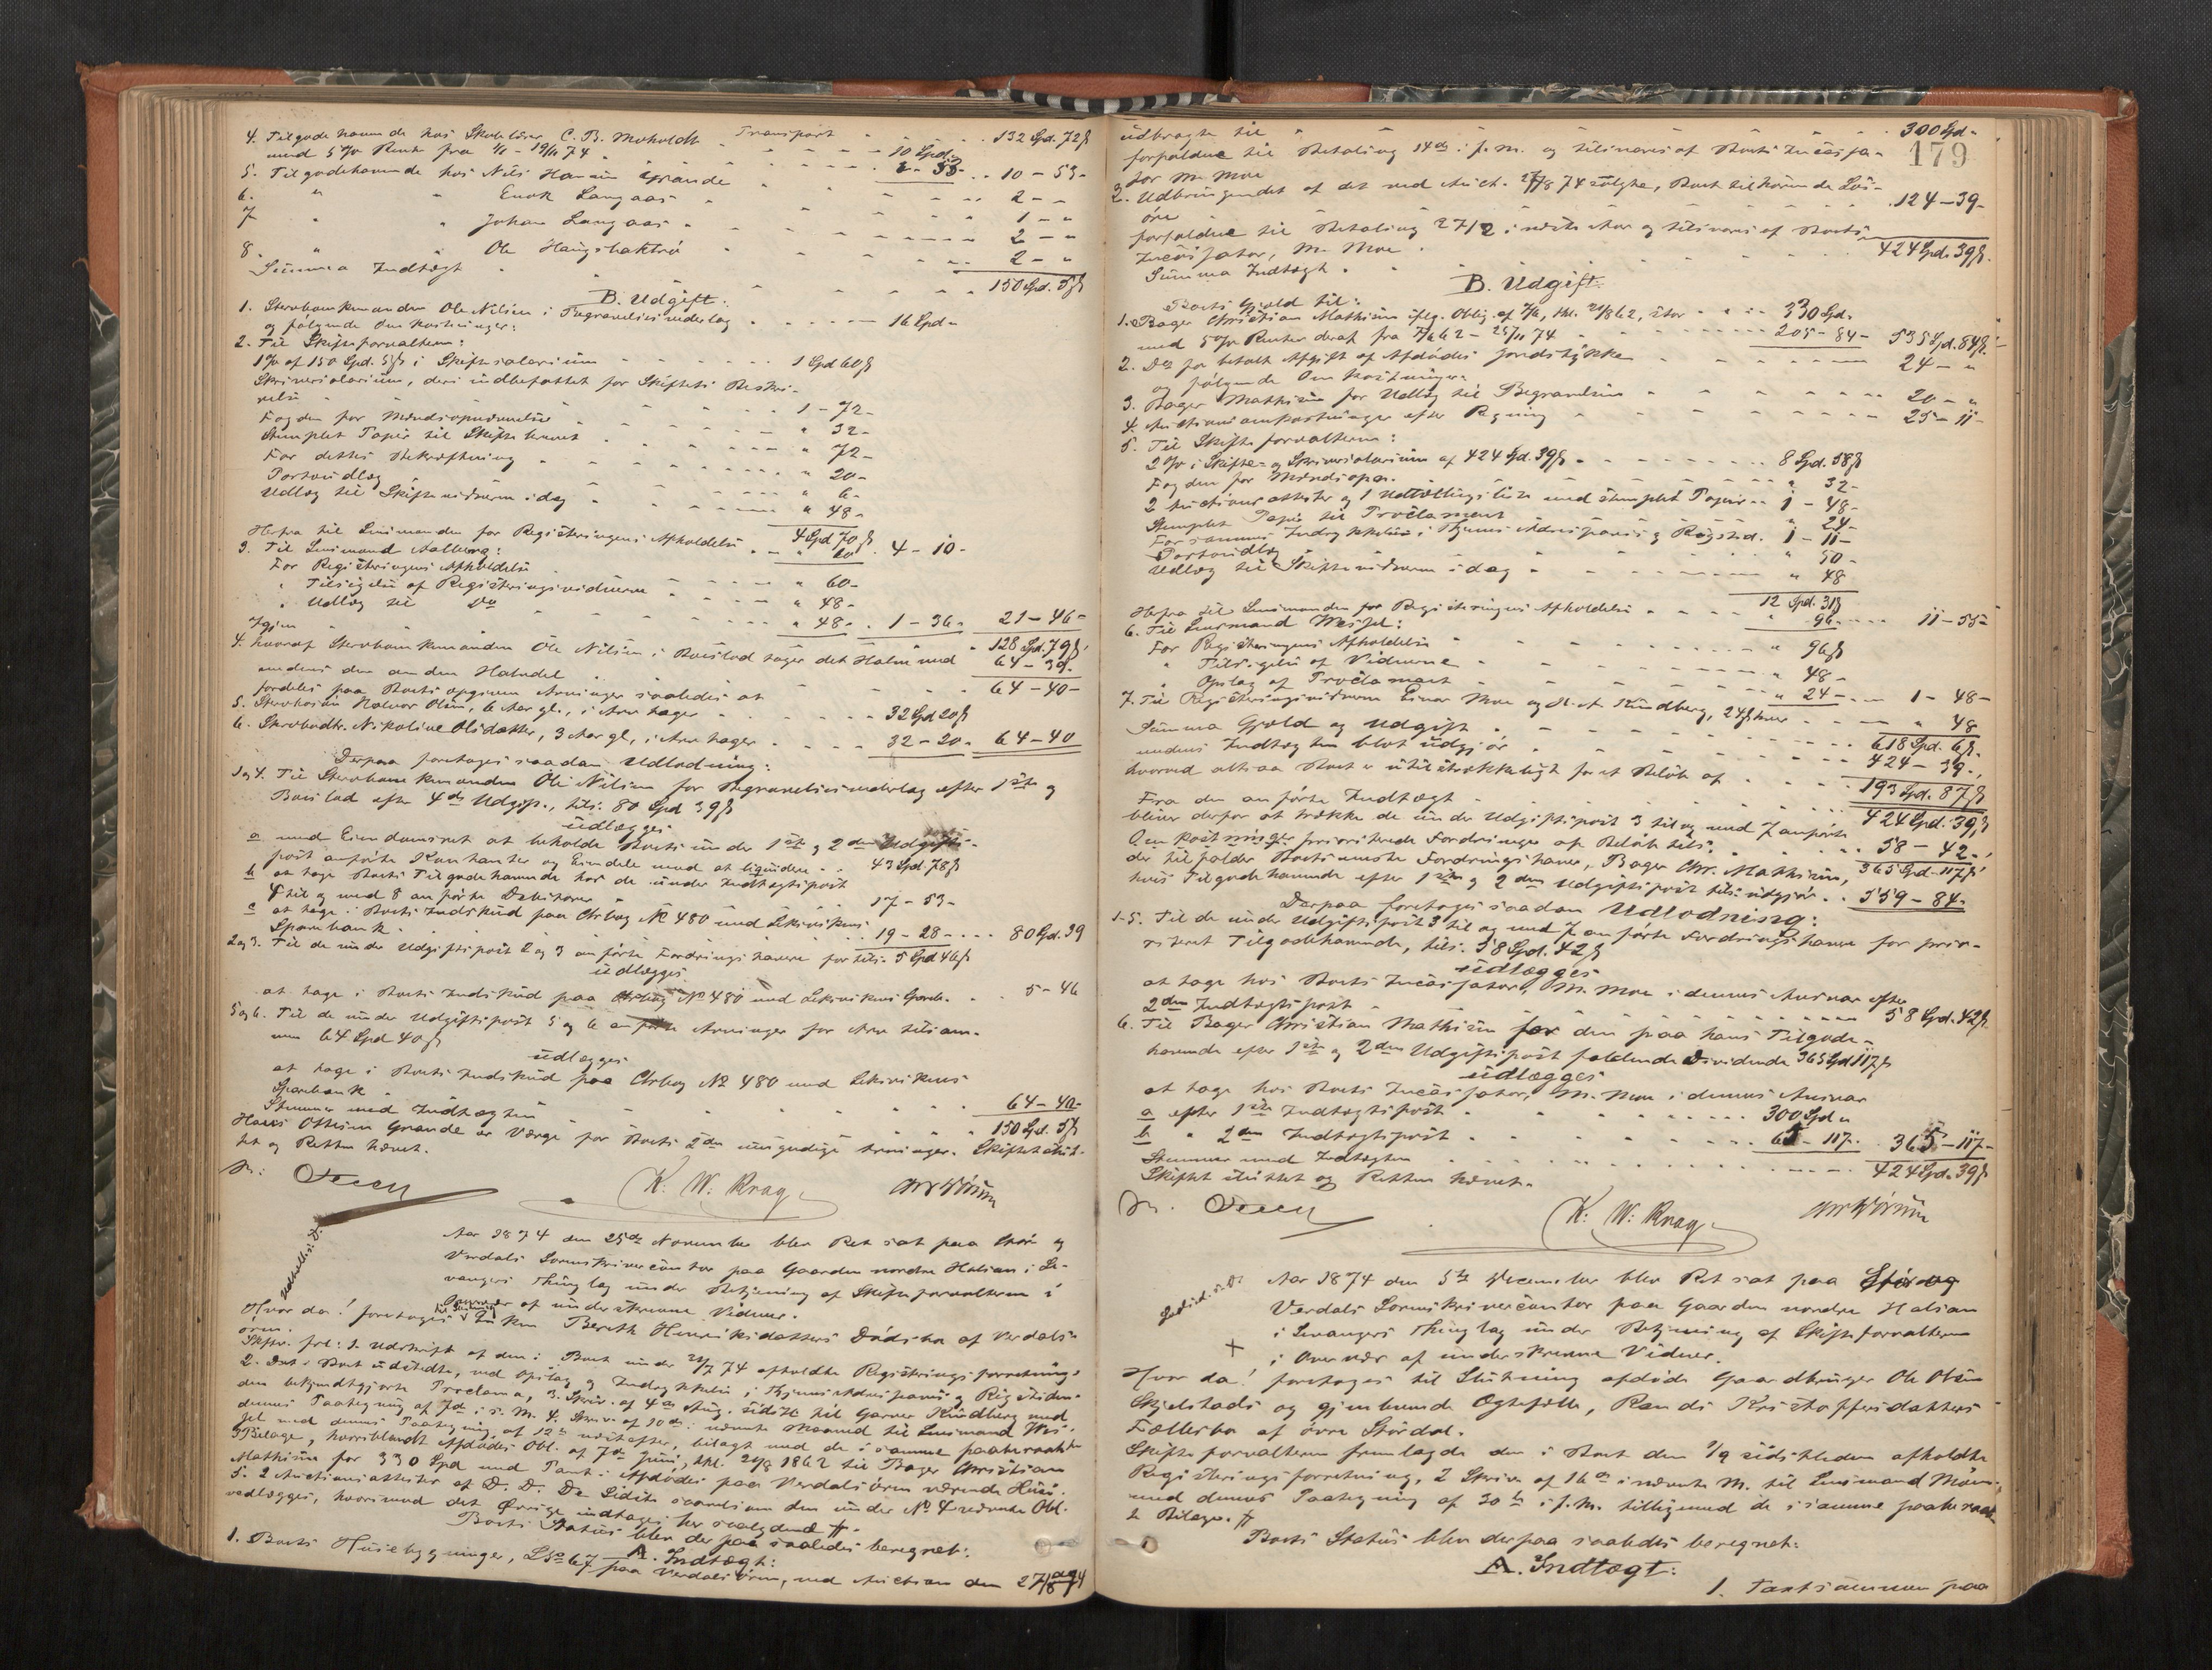 4. Tilgodehavende hos Skolelærer C. B. Moholdt Transport 132 Spd. 72 ß
med 5 % Rente fra 1/11 - 19/11 74 10 Spd.
5. Tilgodehavende hos Nils Hansen Grande " - 53 - 10 - 53 -
6. " " Enok Langaas 2 - "
7 " " Johan Langaas 1 - "
2 - "
8. " " Ole Haugsbakken 2 - "
Summa Indtægt 150 Spd. 5 ß
B. Udgift:
1. Stervboenkemanden Ole Nilsen i Begravelsesvederlag 16 Spd "
og følgende Omkostninger:
2. Til Skifteforvalteren:
1 % af 150 Spd. 5 ß i Skiftesalarium 1 Spd 60 ß
Skriversalarium, deri indbefattet for Skiftets Beskri-
velse 1 - 72 -
Fogden for Mændsopnævnelse " 32 -
Stemplet Papir til Skiftebrevet " 72 -
For dettes Bekræftning " 20 -
Portoudlæg " 6 -
Udlæg til Skiftevidnerne idag " 48 -
4 Spd 70 ß
Herfra til Lensmanden for Registreringens Afholdelse " 60 4 - 10 -
3. Til Lensmand Aalberg:
For Registreringens Afholdelse " 60 -
" Tilsigelse af Registreringsvidnerne " 48 -
" Udlæg til Do " 48 - 1 - 36 - 21 - 46 -
Igjen 128 Spd. 79 ß
4. hvoraf Stervboenkemanden Ole Nilsen i Boeslod tager det Halve med 64 - 39 -
medens den anden Halvdel 64 - 40 -
fordeles paa Boets opgivne Arvinger saaledes at
5. Stervbosøn Halvor Olsen, 6 Aar gl., i Arv tager 32 Spd 20 ß
6. Stervbodtr. Nikoline Olsdatter, 3 Aar gl, i Arv tager 32 - 20 - 64 - 40
Derpaa foretages saadan Udlodning:
1 og 4. Til Stervboenkemanden Ole Nilsen for Begravelsesvederlag efter 1ste og
Boeslod efter 4de Udgiftsp., tils. 80 Spd 39 ß
udlægges
a med Eiendomsret at beholde Boets under 1ste og 2den Udgifts-
post anførte Kontanter og Eiendele med at liquidere 43 Spd 78 ß
b at tage Boets Tilgodehavende hos de under Indtægtspost
4 til og med 8 anførte Debitorer 17 - 53 -
c at tage i Boets Indskud paa Ctrbog No 480 med Leksvikens
Sparebank 19 - 28 - 80 Spd. 39
2 og 3. Til de under Udgiftspost 2 og 3 anførte Fordringshavere for tils. 5 Spd 46 ß
udlægges
at tage i Boets Indskud paa Ctrbog No 480 med Leksvikens Spareb. 5 - 46
5 og 6. Til de under Udgiftspost 5 og 6 anførte Arvinger for Arv tilsam-
men 64 Spd 40 ß
udlægges
at tage i Boets Indskud paa Ctrbog No 480 med Leksvikens
Sparebank 64 - 40 -
Stemmer med Indtægten 150 Spd. 5 ß
Hans Ottesen Grande er Værge for Boets 2de umyndige Arvinger. Skiftet slut-
tet og Retten hævet.
K. W. Krag
Aar 1874 den 25de November blev Ret sat paa Stør og
Verdals Sorenskrivercontor paa Gaarden nordre Halsan i Le-
vangers Thinglag under Betjening af Skifteforvalteren i
Overvær af underskrevne Vidner.
Hvor da! foretages Enken Bereth Henriksdatters Dødsbo af Verdals-
øren.
Skftfv. frl: 1. Udskrift af den i Boet under 21/7 74 afholdte Registreringsforretning,
2. det i Boet udstedte, ved Opslag og Indrykkelse i Thjems Adresseavis og Rigstiden-
den bekjendtgjorte Proclama, 3. Skriv. af 4de Aug. sidstl. til Garver Kindberg med
dennes Paategning af 7de i s. M. 4. Skriv. af 10de i nævnte Maaned til Lensmand Wes-
sel med dennes Paategning af 12te næstefter, bilagt med de i samme paaberaabte
3 Bilage, hvoriblandt Afdødes Obl. af 7de Juni, thl. 20/8 1862 til Bager Christian
Mathisen for 330 Spd med Pant i Afdødes paa Verdalsøren værende Huse.
5. 2 Auctionsattester af D. D. De Sidste saavelsom den under No. 4 nævnte Obl.
vedlægges, hvorimod det Øvrige indtages her saalydende #.
Boets Status blev derpaa saaledes beregnet:
A. Indtægt:
1. Boets Husebygninger, LNo 67 paa Verdalsøren, ved Auction den 27/8 74
179
udbragte til 300 Spd "
forfaldne til Betaling 14de i f. M. og tilsvares af Boets Incassa-
tor M. Moe
2. Udbringendet af det ved Auct. 27/8 74 solgte, Boet tilhørende Løs-
øre 124 - 39 -
forfaldne til Betaling 27/2 i næste Aar og tilsvares af Boets
Incassator, M. Moe
Summa Indtægt 424 Spd. 39 ß.
B. Udgift.
Boets Gjæld til:
1. Bager Christian Mathisen iflg. Oblig. af 7/6, thl. 20/8 62, stor 330 Spd.
med 5 % Renter deraf fra 7/6 62 - 25/11 74 205 - 84 - 535 Spd. 84 ß.
2. Do for betalt Afgift af Afdødes Jordstykke 24 - "
og følgende Omkostninger:
3. Bager Mathisen for Udlæg til Begravelsen 20 - "
4. Auctionsomkostninger efter Regning 25 - 11 -
5. Til Skifteforvalteren:
2 % i Skifte- og Skriversalarium af 424 Spd. 39 ß 8 Spd. 58 ß
Fogden for Mændsopn. " 32 -
2 Auctionsattester og 1 Udtællingsliste med stemplet Papir 1 - 48 -
Stemplet Papir til Proclamaet " 24 -
For sammes Indrykkelse i Thjems Adresseavis og Rigstid. 1 - 11 -
Portoudlæg " 50 -
Udlæg til Skiftevidnerne idag " 48
12 Spd. 31 ß
Herfra til Lensmanden for Registreringens Afholdelse " 96 11 - 55 -
6. Til Lensmand Wessel:
For Registreringens Afholdelse " 96 ß
" Tilsigelse af Vidnerne " 48 -
" Opslag af Proclamaet " 24 - 1 - 48 -
7. Til Registreringsvidnerne Einar Moe og H. A. Kindberg, 24 ß hver " 48
Summa Gjæld og Udgift 618 Spd. 6 ß.
medens Indtægten blot udgjør 424 - 39 -
hvorved altsaa Boet er utilstrækkeligt for et Beløb af 193 Spd. 87 ß
Fra den anførte Indtægt 424 Spd. 39 ß
bliver derfor at trække de under Udgiftspost 3 til og med 7 anførte
Omkostninger prioriterede Fordringer af Beløb tils. 58 - 42 -
der tilfalder Boets eneste Fordringshaver, Bager Chr. Mathisen, 365 Spd - 117 ß
hvis Tilgodehavende efter 1ste og 2den Udgiftspost tils. udgjør 559 - 84 -
Derpaa foretages saadan Udlodning:
1-5. Til de under Udgiftspost 3 til og med 7 anførte Fordringshavere for prio-
riteret Tilgodehavende, tils. 58 Spd. 42 ß
udlægges
at tage hos Boets Incassator, M. Moe i dennes Ansvar efter
2den Indtægtspost 58 Spd. 42 ß
6. Til Bager Christian Mathisen for den paa hans Tilgode-
havende efter 1ste og 2den Udgiftspost faldende Dividende 365 Spd 117 ß
udlægges
at tage hos Boets Incassator, M. Moe i dennes Ansvar
a efter 1ste Indtægtspost 300 Spd "
b " 2den Indtægtspost 65 - 117 - 365 - 117 -
Stemmer med Indtægten 424 Spd. 39 ß
Skiftet sluttet og Retten hævet.
K. W. Krag
Aar 1874 den 5te December blev Ret sat paa Stør og
Verdals Sorenskrivercontor paa Gaarden nordre Halsan
i Levangers Thinglag under Betjening af Skifteforvalteren
i Overvær af underskrevne Vidner.
Hvor da! foretages til Slutning afdøde Gaardbruger Ole Olsen
Skjelstads og gjenlevende Ægtefælle, Randi Kristoffersdatters
Fællesbo af øvre Stördal.
Skifteforvalteren fremlagde den i Boet den 1/9 sidstleden afholdte
Registreringsforretning, 2 Skriv. af 16de i nævnte M. til Lensmand
med dennes Paategning af 30te i f. M. tilligemed de i samme paaberaab-
te Bilage. #
Boets Status blev derpaa saaledes beregnet:
A. Indtægt:
1. Taxtsummen paa